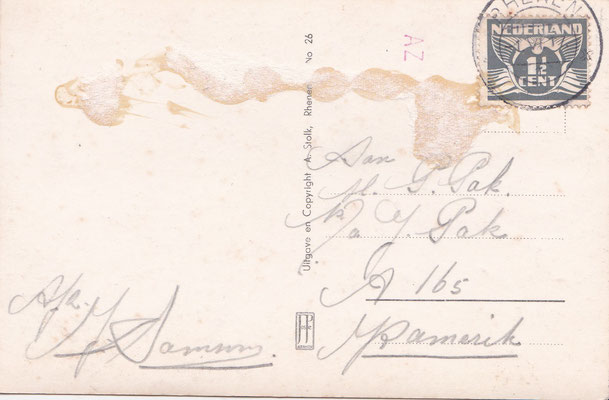 RHENEN
NEDERLAND
1½
CENT
AZ
Uitgave en Copyright A. Stolk, Rhenen No 26
Aan
G. Pak.
J. Pak
A 165
Kamerik
Afz.
J Samsom.